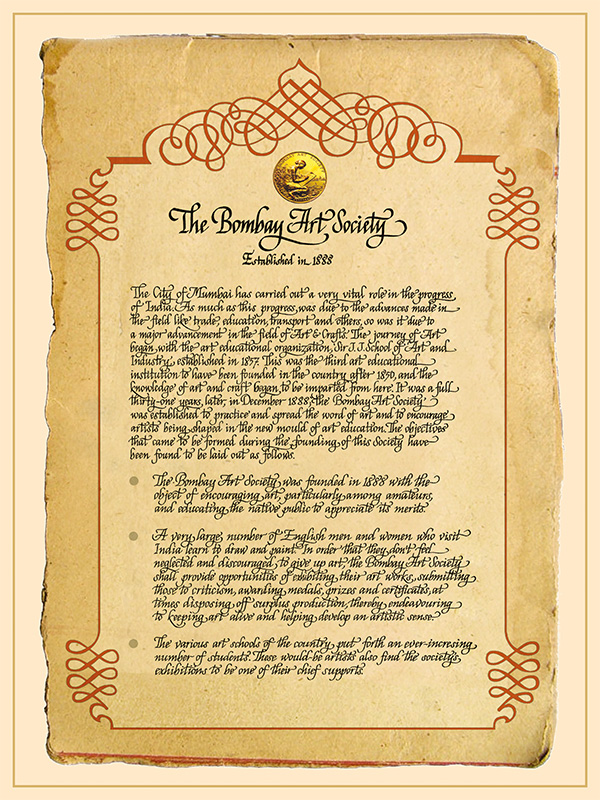 The Bombay Art Society
Established in 1888
The City of Mumbai has carried out a very vital role in the progress
of India. As much as this progress was due to the advances made in
the field like trade, education, transport and others, so was it due to
a major advancement in the field of Art & Crafts. The journey of Art
began with the art educational organization, Sir J.J. School of Art and
Industry, established in 1857. This was the third art educational
institution to have been founded in the country after 1850, and the
knowledge of art and craft began to be imparted from here. It was a full
thirty-one years later, in December 1888, 'the Bombay Art Society'
was established to practice and spread the word of art and to encourage
artists being shaped in the new mould of art education. The objectives
that came to be formed during the founding of this Society have
been found to be laid out as follows.
The Bombay Art Society was founded in 1888 with the
object of encouraging art, particularly among amateurs,
and educating the native public to appreciate its merits.
A very large number of English men and women who visit
India learn to draw and paint. In order that they don't feel
neglected and discouraged to give up art, the Bombay Art Society
shall provide opportunities of exhibiting their art works, submitting
those to criticism, awarding medals, prizes and certificates, at
times disposing off surplus production, thereby endeavouring
to keeping art alive and helping develop an artistic sense.
The various art schools of the country put forth an ever-incresing
number of students. These would-be artists also find the society's
exhibitions to be one of their chief supports.